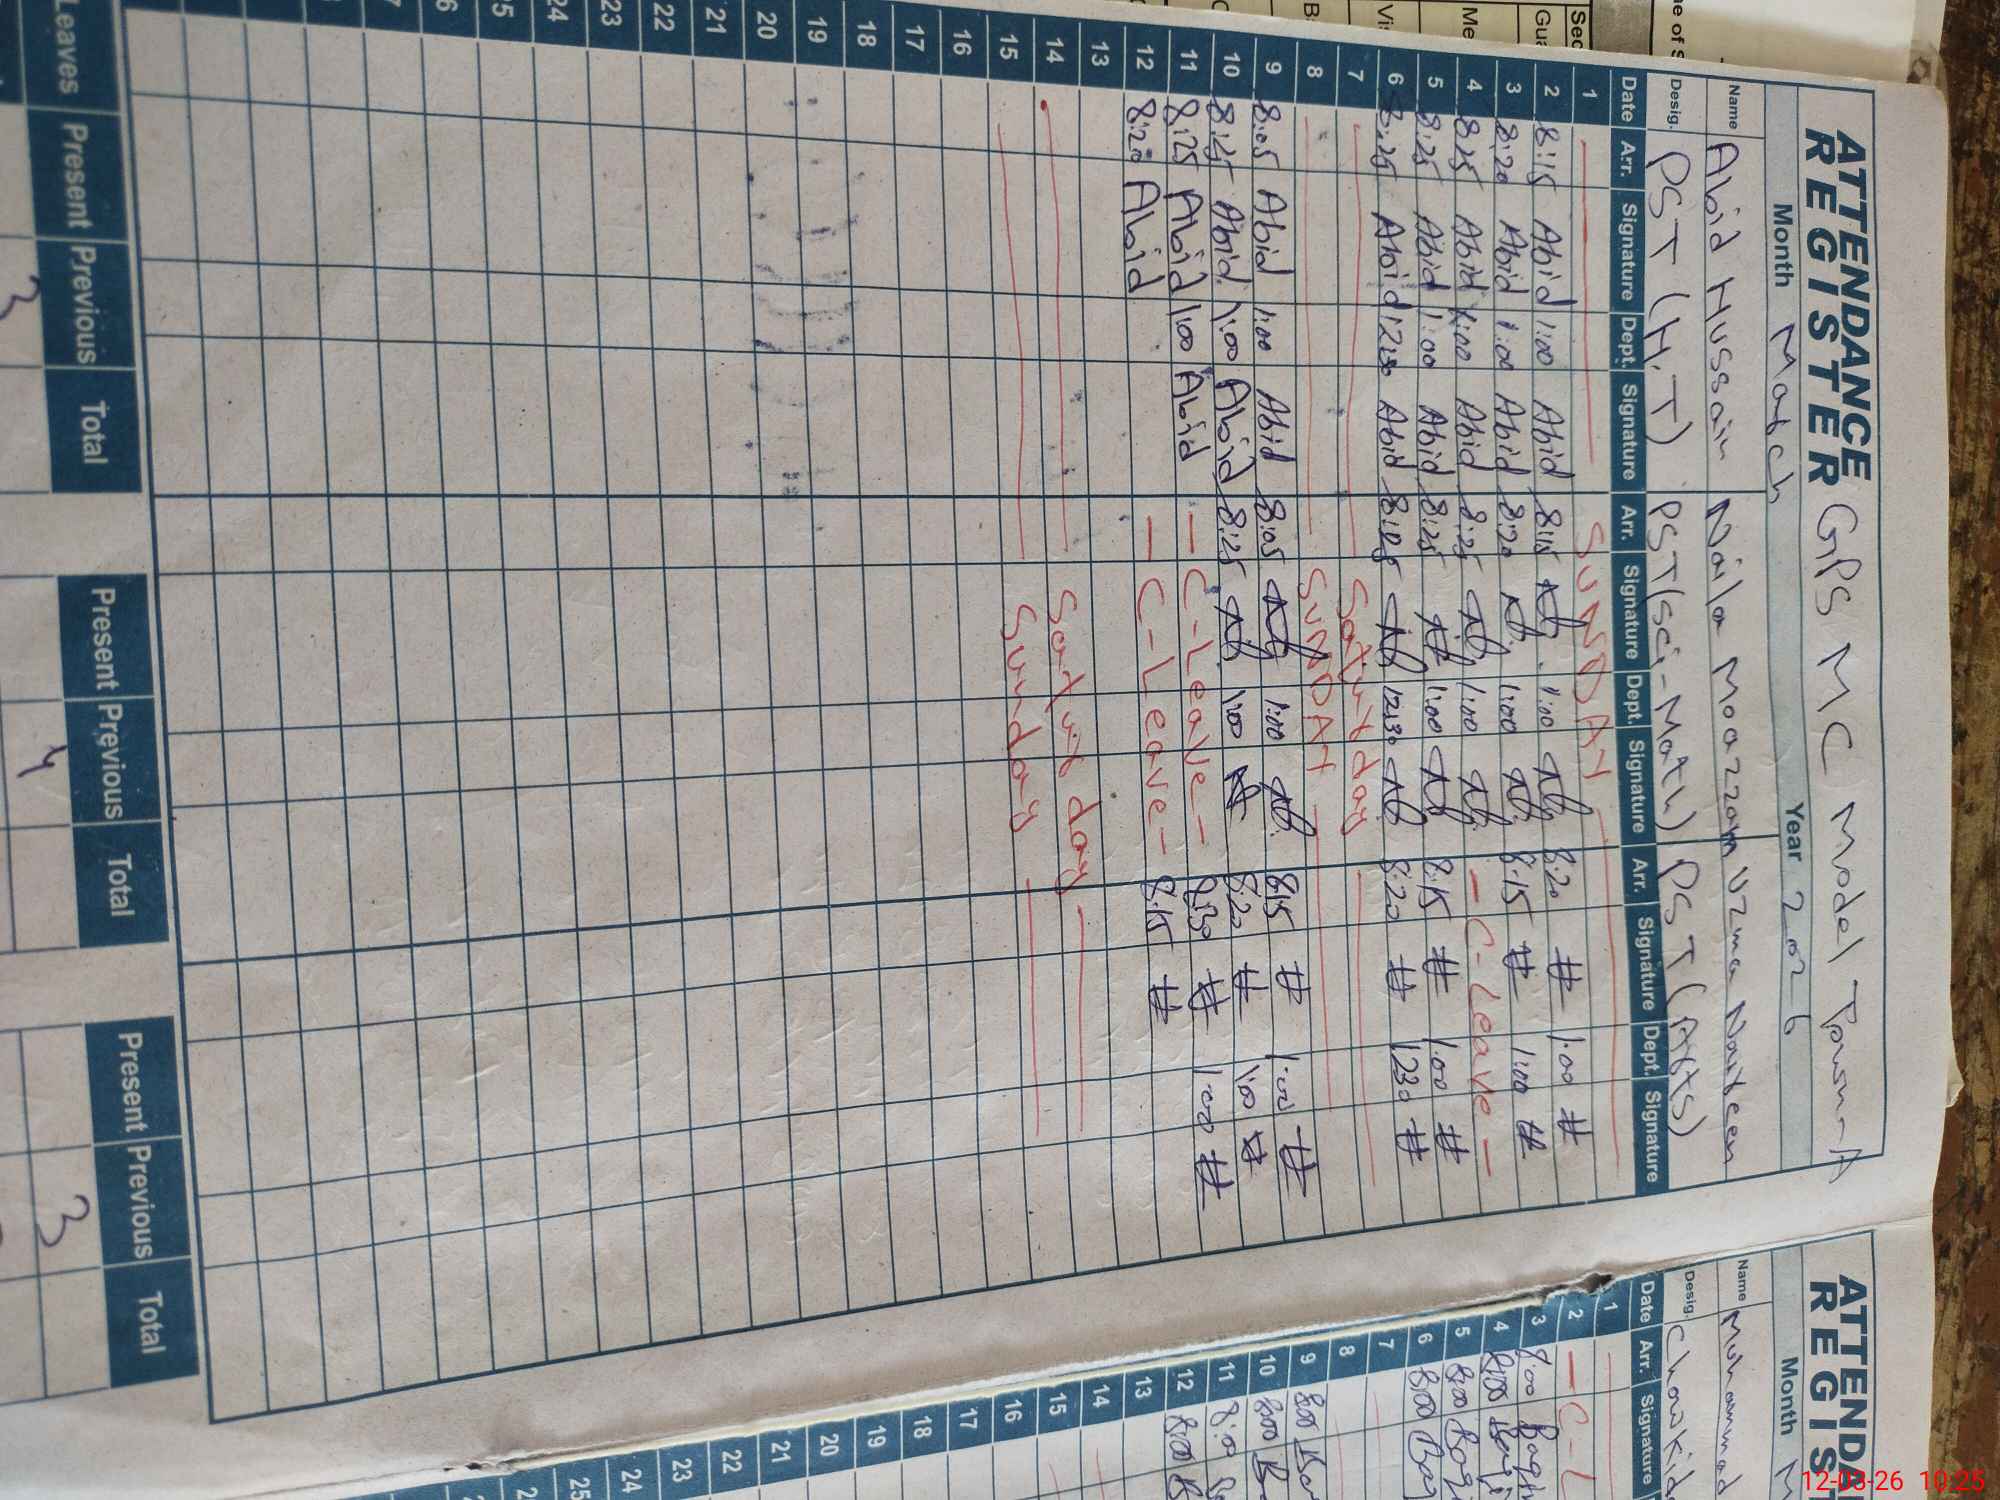 ATTENDANCE REGISTER GPS MC Model Town-A
Month March Year 2026
Name Abid Hussain Naila Moazzam Uzma Nourteen
Desig. PST (H.T) PST (Sci-Math) PST (Arts)
Date Arr. Signature Dept. Signature Arr. Signature Dept. Signature Arr. Signature Dept. Signature
1 SUNDAY
2 8:15 Abid 1:00 Abid 8:15 1:00 8:20 1:00
3 8:20 Abid 1:00 Abid 8:20 1:00 8:15 1:00
4 8:25 Abid 1:00 Abid 8:25 1:00 - C-Leave -
5 8:25 Abid 1:00 Abid 8:25 1:00 8:15 1:00
6 8:25 Abid 12:30 Abid 8:25 12:30 8:20 1230
7 Saturday
8 SUNDAY
9 8:05 Abid 1:00 Abid 8:05 1:00 8:15 1:00
10 8:25 Abid 1:00 Abid 8:25 1:00 8:20 1:00
11 8:25 Abid 1:00 Abid - C-Leave - 8:30 1:00
12 8:20 Abid - C-Leave - 8:15
13
14 Saturday
15 Sunday
16
17
18
19
20
21
22
23
24
25
Leaves Present Previous Total Present Previous Total Present Previous Total
3 4 3
ATTENDA
REGIST
Month M
Name Muhammad
Desig. Chowkid
Date Arr. Signature
1
2 - C-L
3 8:00
4 8:00
5 8:00
6 8:00
7
8
9 8:00
10 8:00
11 8:00
12 8:00
13
14
15
16
17
18
19
20
21
22
23
24
25
12-03-26 10:25